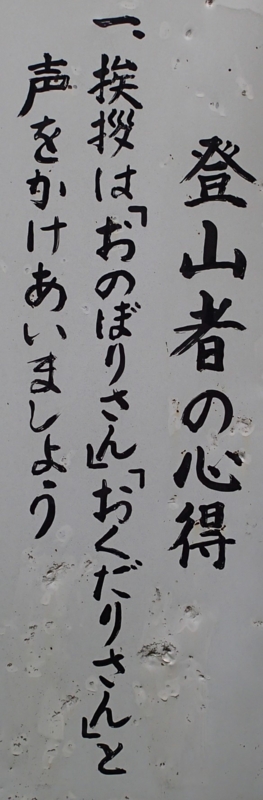 登山者の心得
一、挨拶は「おのぼりさん」「おくだりさん」と
声をかけあいましょう